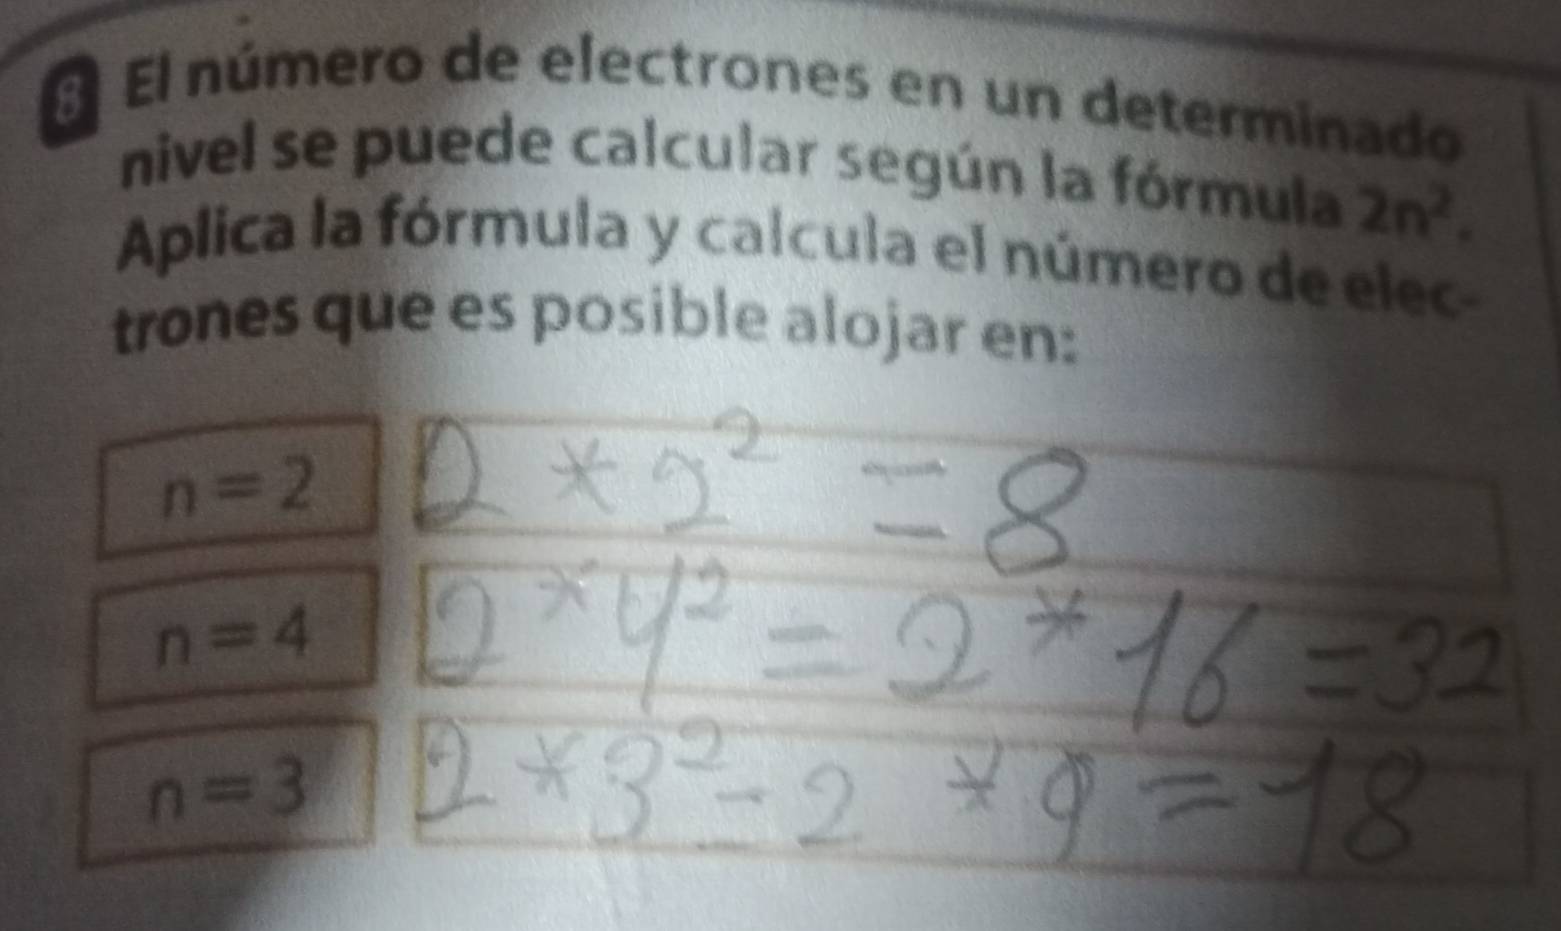 8 El número de electrones en un determinado
nivel se puede calcular según la fórmula 2n².
Aplica la fórmula y calcula el número de elec-
trones que es posible alojar en:
n = 2 2 * 2² = 8
n = 4 2 * 4² = 2 * 16 = 32
n = 3 2 * 3² = 2 * 9 = 18